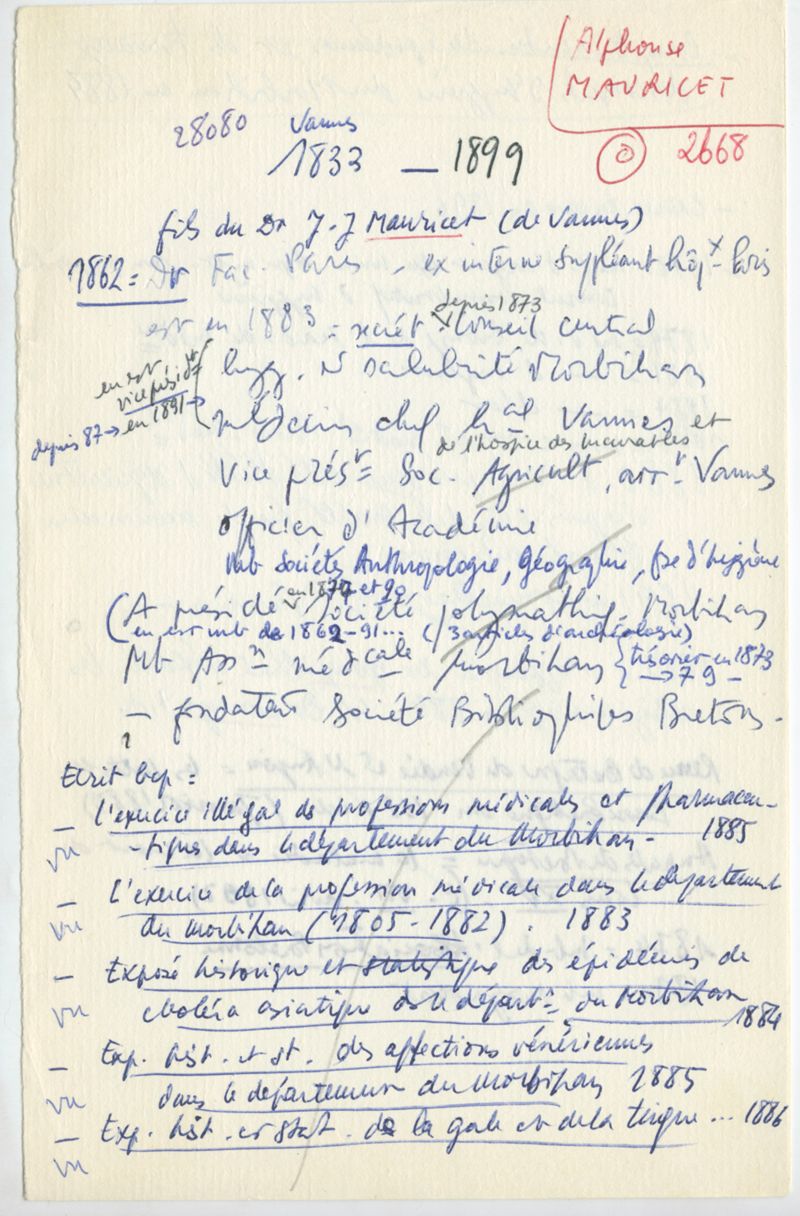 Alphonse
MAURICET
2668
28080 Vannes
1833 — 1899
fils du Dr J-J Mauricet (de Vannes)
1862 = Dr Fac. Paris, ex interne suppléant hôpx Paris
depuis 1873
est en 1883 = secrét Conseil central
hyg. et salubrité Morbihan
en est
vice présidt
depuis 87 → en 1891 →
médecin chef hal Vannes et
de l'hospice des incurables
Vice préstr Soc. Agricult, arrt Vannes
officier d'Académie
mb Sociétés Anthropologie, Géographie, fse d'hygiène
en 1877 et 90
(A présidé Société polymathiq. Morbihan
en est mb de 1862-91... (/ 3 articles d'archéologie)
Mb Assn médicale Morbihan { trésorier en 1873
→ 79 -
— fondateur Société Bibliophiles Bretons -
?
Ecrit bcp :
— l'exercice illégal des professions médicales et pharmaceu-
vu -tiques dans le département du Morbihan - 1885
— L'exercice de la profession médicale dans le département
vu du Morbihan (1805-1882). 1883
— Exposé historique et statistique des épidémies de
vu choléra asiatique ds le départt du Morbihan 1884
— Exp. hist. et st. des affections vénériennes
vu dans le département du Morbihan 1885
— Exp. hist. et stat. de la gale et de la teigne ... 1886
vu